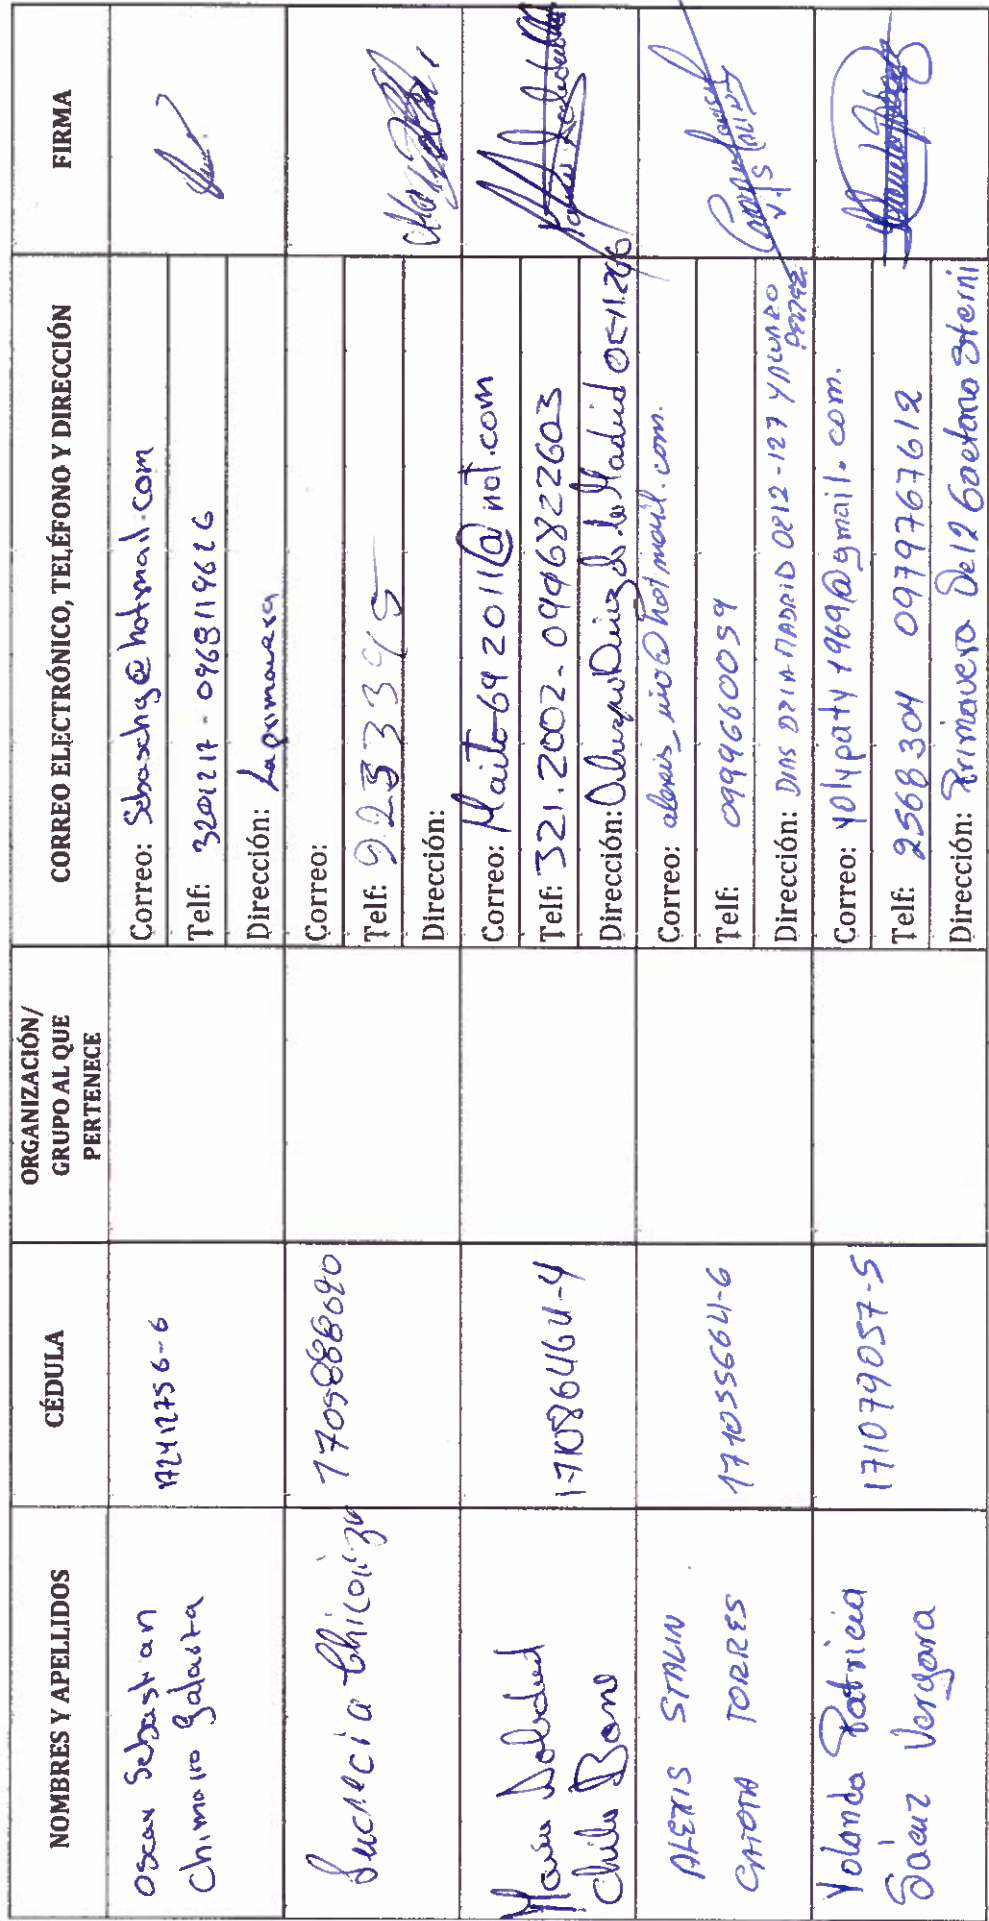 NOMBRES Y APELLIDOS
CÉDULA
ORGANIZACIÓN/
GRUPO AL QUE
PERTENECE
CORREO ELECTRÓNICO, TELÉFONO Y DIRECCIÓN
FIRMA
Oscar Sebastian
Chimarro Galarza
172412756-6
Correo: Sebaschg@hotmail.com
Telf: 3201217 - 0968119626
Dirección: La primavera
Lucrecia
1705888090
Correo:
Telf: 9233395
Dirección:
Maria Soledad
171086464-4
Correo: Maito-6942011@hot.com
Telf: 321.2002-0996822603
Dirección: Madrid OE-11.206
ALEXIS STALIN
GAIOTTA TORRES
171055664-6
Correo: alexis_nio@hotmail.com.
Telf: 0999660059
Dirección: DIAS D LA MADRID OE12-127 Y ALVARO PEREZ
Yolanda Patricia
Sáenz Vergara
171079057-5
Correo: yolypaty1969@gmail.com.
Telf: 2568304 0979767612
Dirección: Primavera De12 Gaetano Sterni